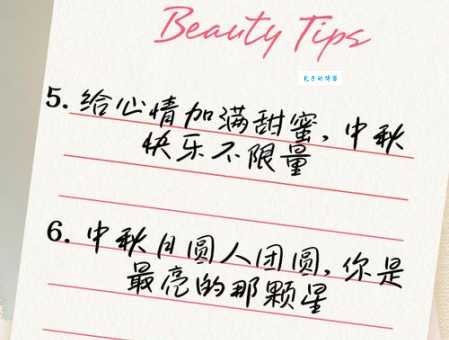 Beauty Tips
5. 给心情加满甜蜜, 中秋
快乐不限量
6. 中秋月圆人团圆, 你是
最亮的那颗星